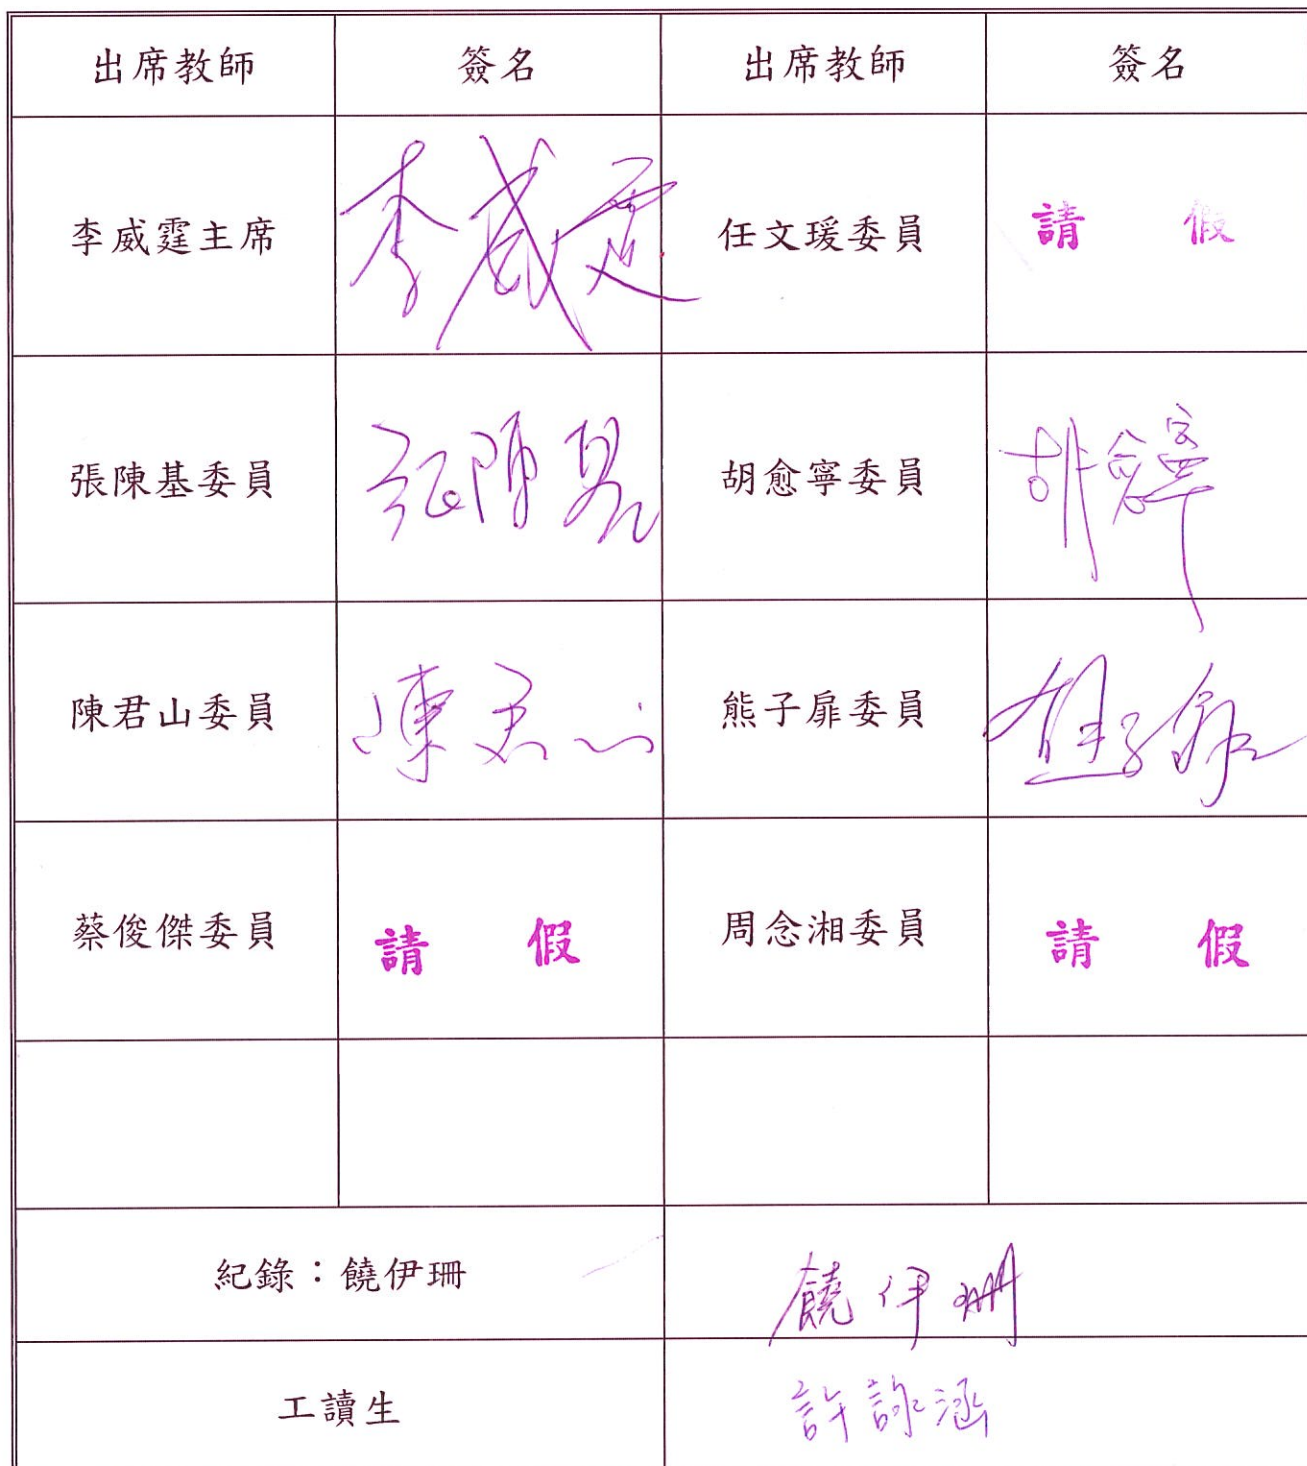 出席教師 簽名 出席教師 簽名
李威霆主席 李威霆 任文瑗委員 請 假
張陳基委員 張陳基 胡愈寧委員 胡愈寧
陳君山委員 陳君山 熊子扉委員 熊子扉
蔡俊傑委員 請 假 周念湘委員 請 假
紀錄：饒伊珊 饒伊珊
工讀生 許詠涵